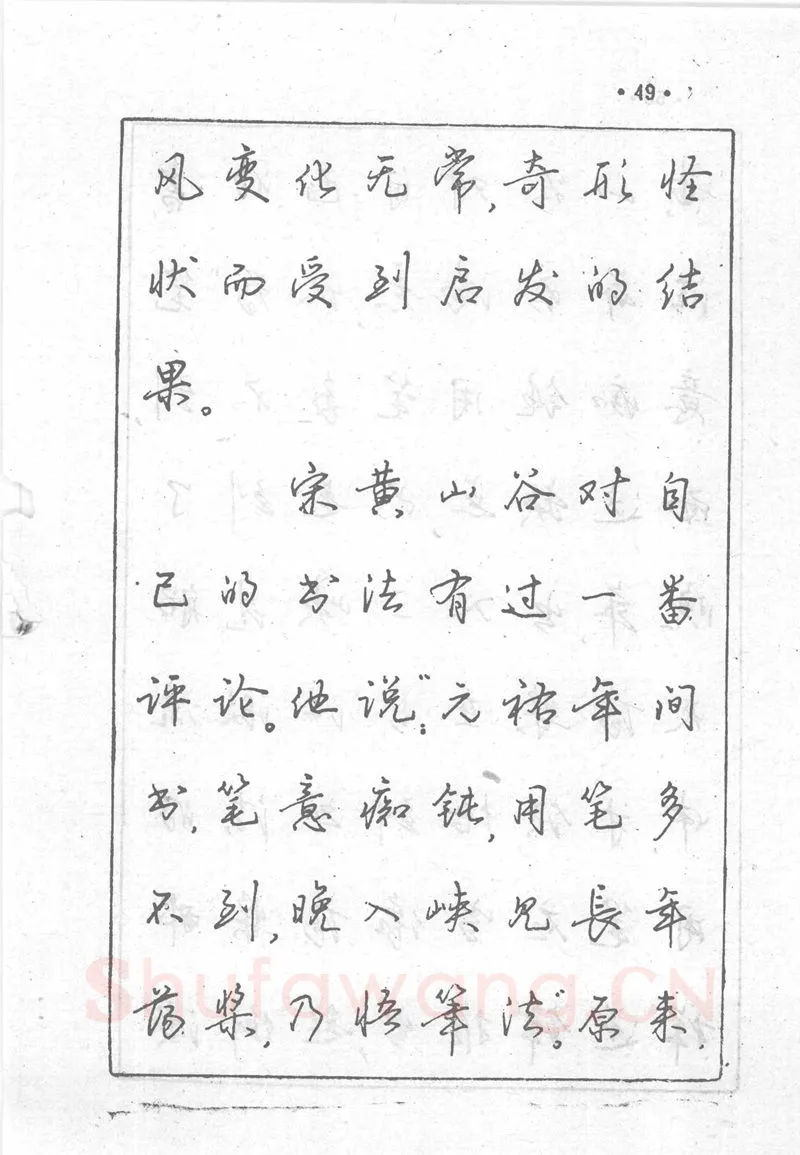 ·49·
风变化无常,奇形怪
状而受到启发的结
果。
宋黄山谷对自
己的书法有过一番
评论。他说:“元祐年间
书,笔意痴钝,用笔多
不到,晚入峡见長年
荡桨,乃悟笔法”。原来,
Shufawang.CN